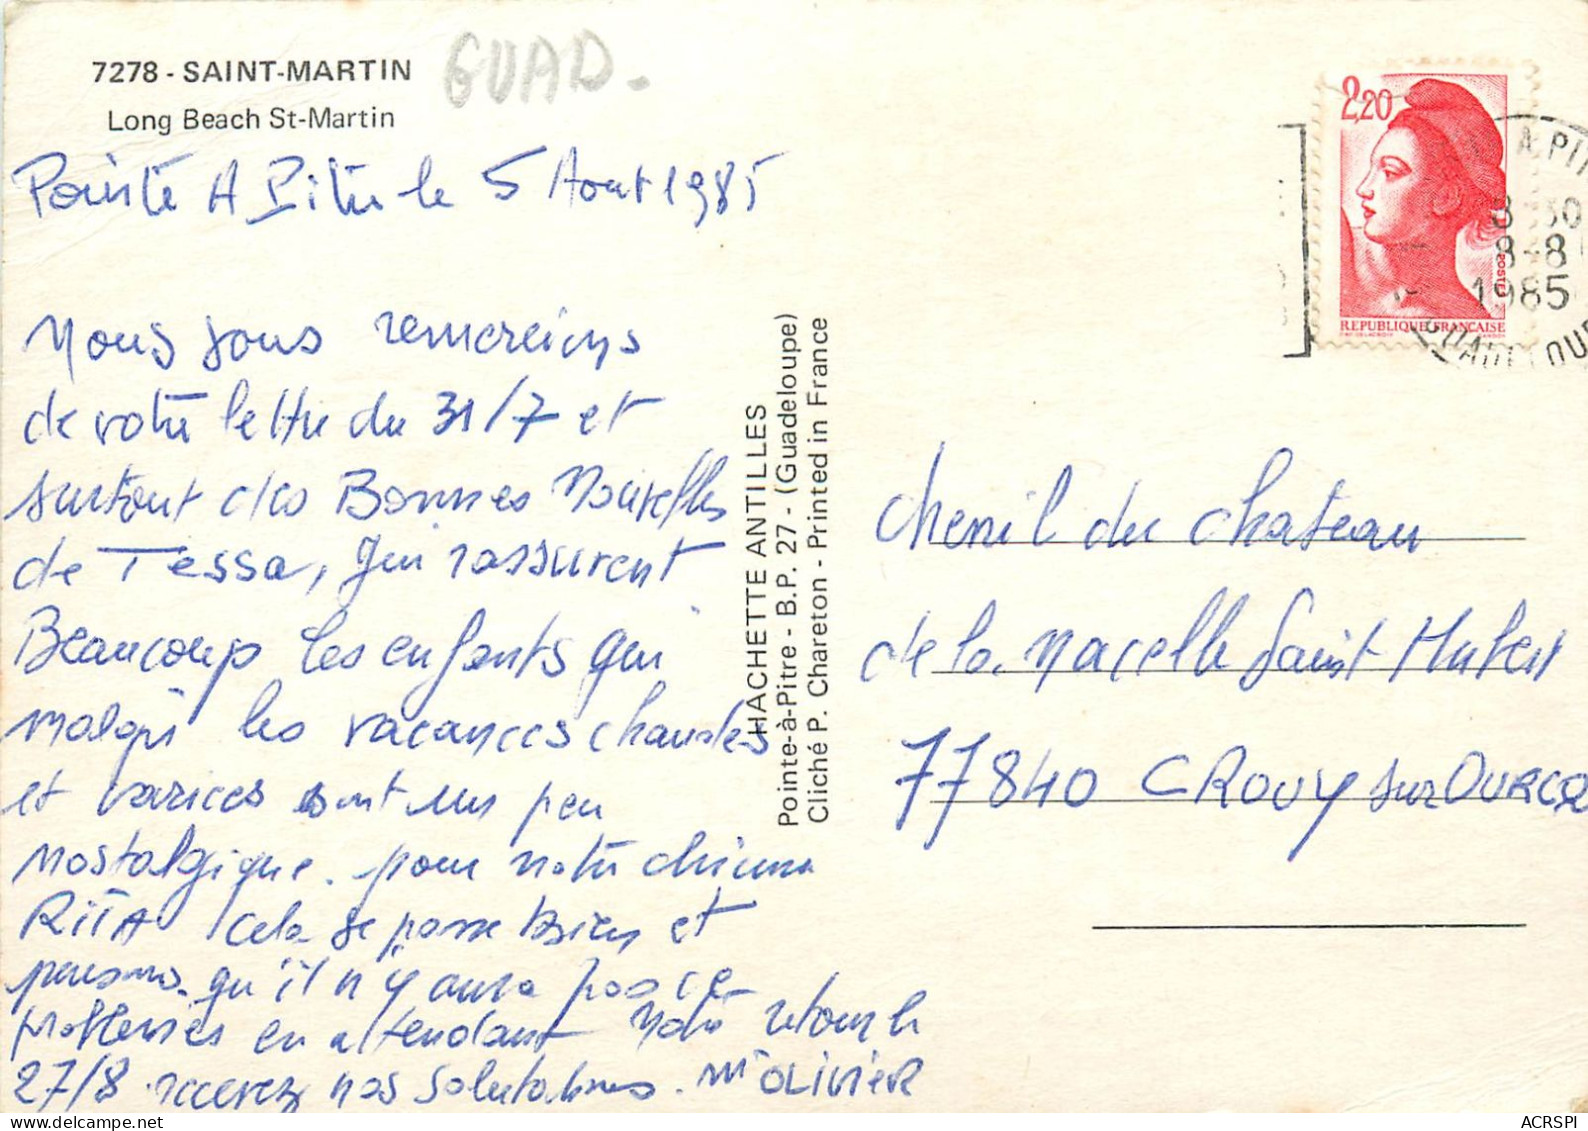 7278 - SAINT-MARTIN
GUAD.
Long Beach St-Martin
Pointe A Pitre le 5 Aout 1985
Nous vous remercions
de votre lettre du 31/7 et
surtout des Bonnes Nouvelles
de Tessa, qui rassurent
Beaucoup les enfants qui
malgré les vacances chaudes
et variées sont un peu
nostalgique. pour notre chienne
RITA cela se passe bien et
pensons qu'il n'y aura pas de
problemes en attendant notre retour le
27/8 recevez nos salutations. Mr OLIVIER
HACHETTE ANTILLES
Pointe-à-Pitre - B.P. 27 - (Guadeloupe)
Cliché P. Chareton - Printed in France
2,20
POSTES
REPUBLIQUE FRANÇAISE
A PIT
8 30
8-8
1985
GUADELOUP
Chenil du chateau
de la Nacelle Saint Hubert
77840 CROUY sur OURCQ
ACRSPI